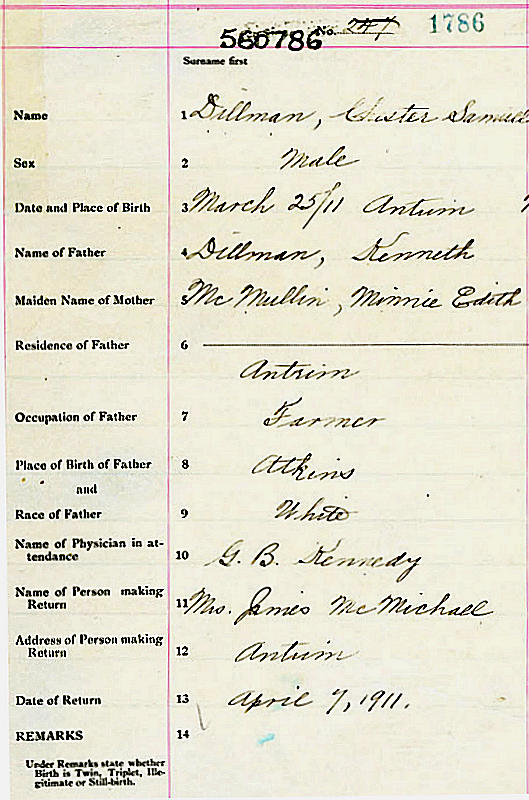 560786 No. 247 1786
Surname first
Name 1 Dillman, Chester Samuel
Sex 2 Male
Date and Place of Birth 3 March 25/11 Antrim
Name of Father 4 Dillman, Kenneth
Maiden Name of Mother 5 Mc Mullin, Minnie Edith
Residence of Father 6
Antrim
Occupation of Father 7 Farmer
Place of Birth of Father 8 Atkins
and
Race of Father 9 White
Name of Physician in at-
tendance 10 G. B. Kennedy
Name of Person making
Return 11 Mrs. James Mc Michael
Address of Person making
Return 12 Antrim
Date of Return 13 April 7, 1911.
REMARKS 14
Under Remarks state whether
Birth is Twin, Triplet, Ille-
gitimate or Still-birth.